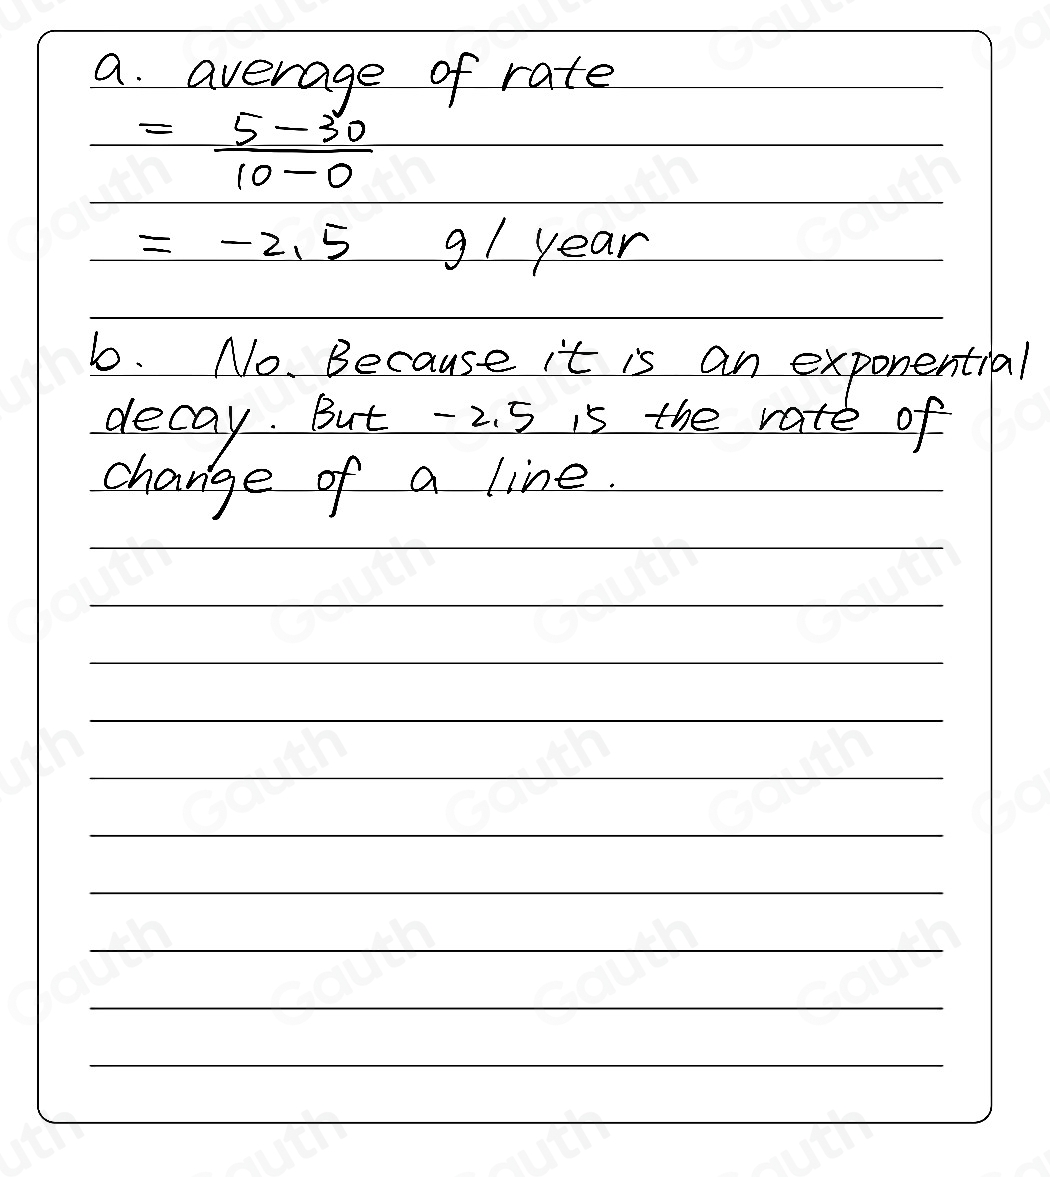 a. average of rate
= 5-30
10-0
= -2.5 g/year
b. No. Because it is an exponential
decay. But -2.5 is the rate of
change of a line.